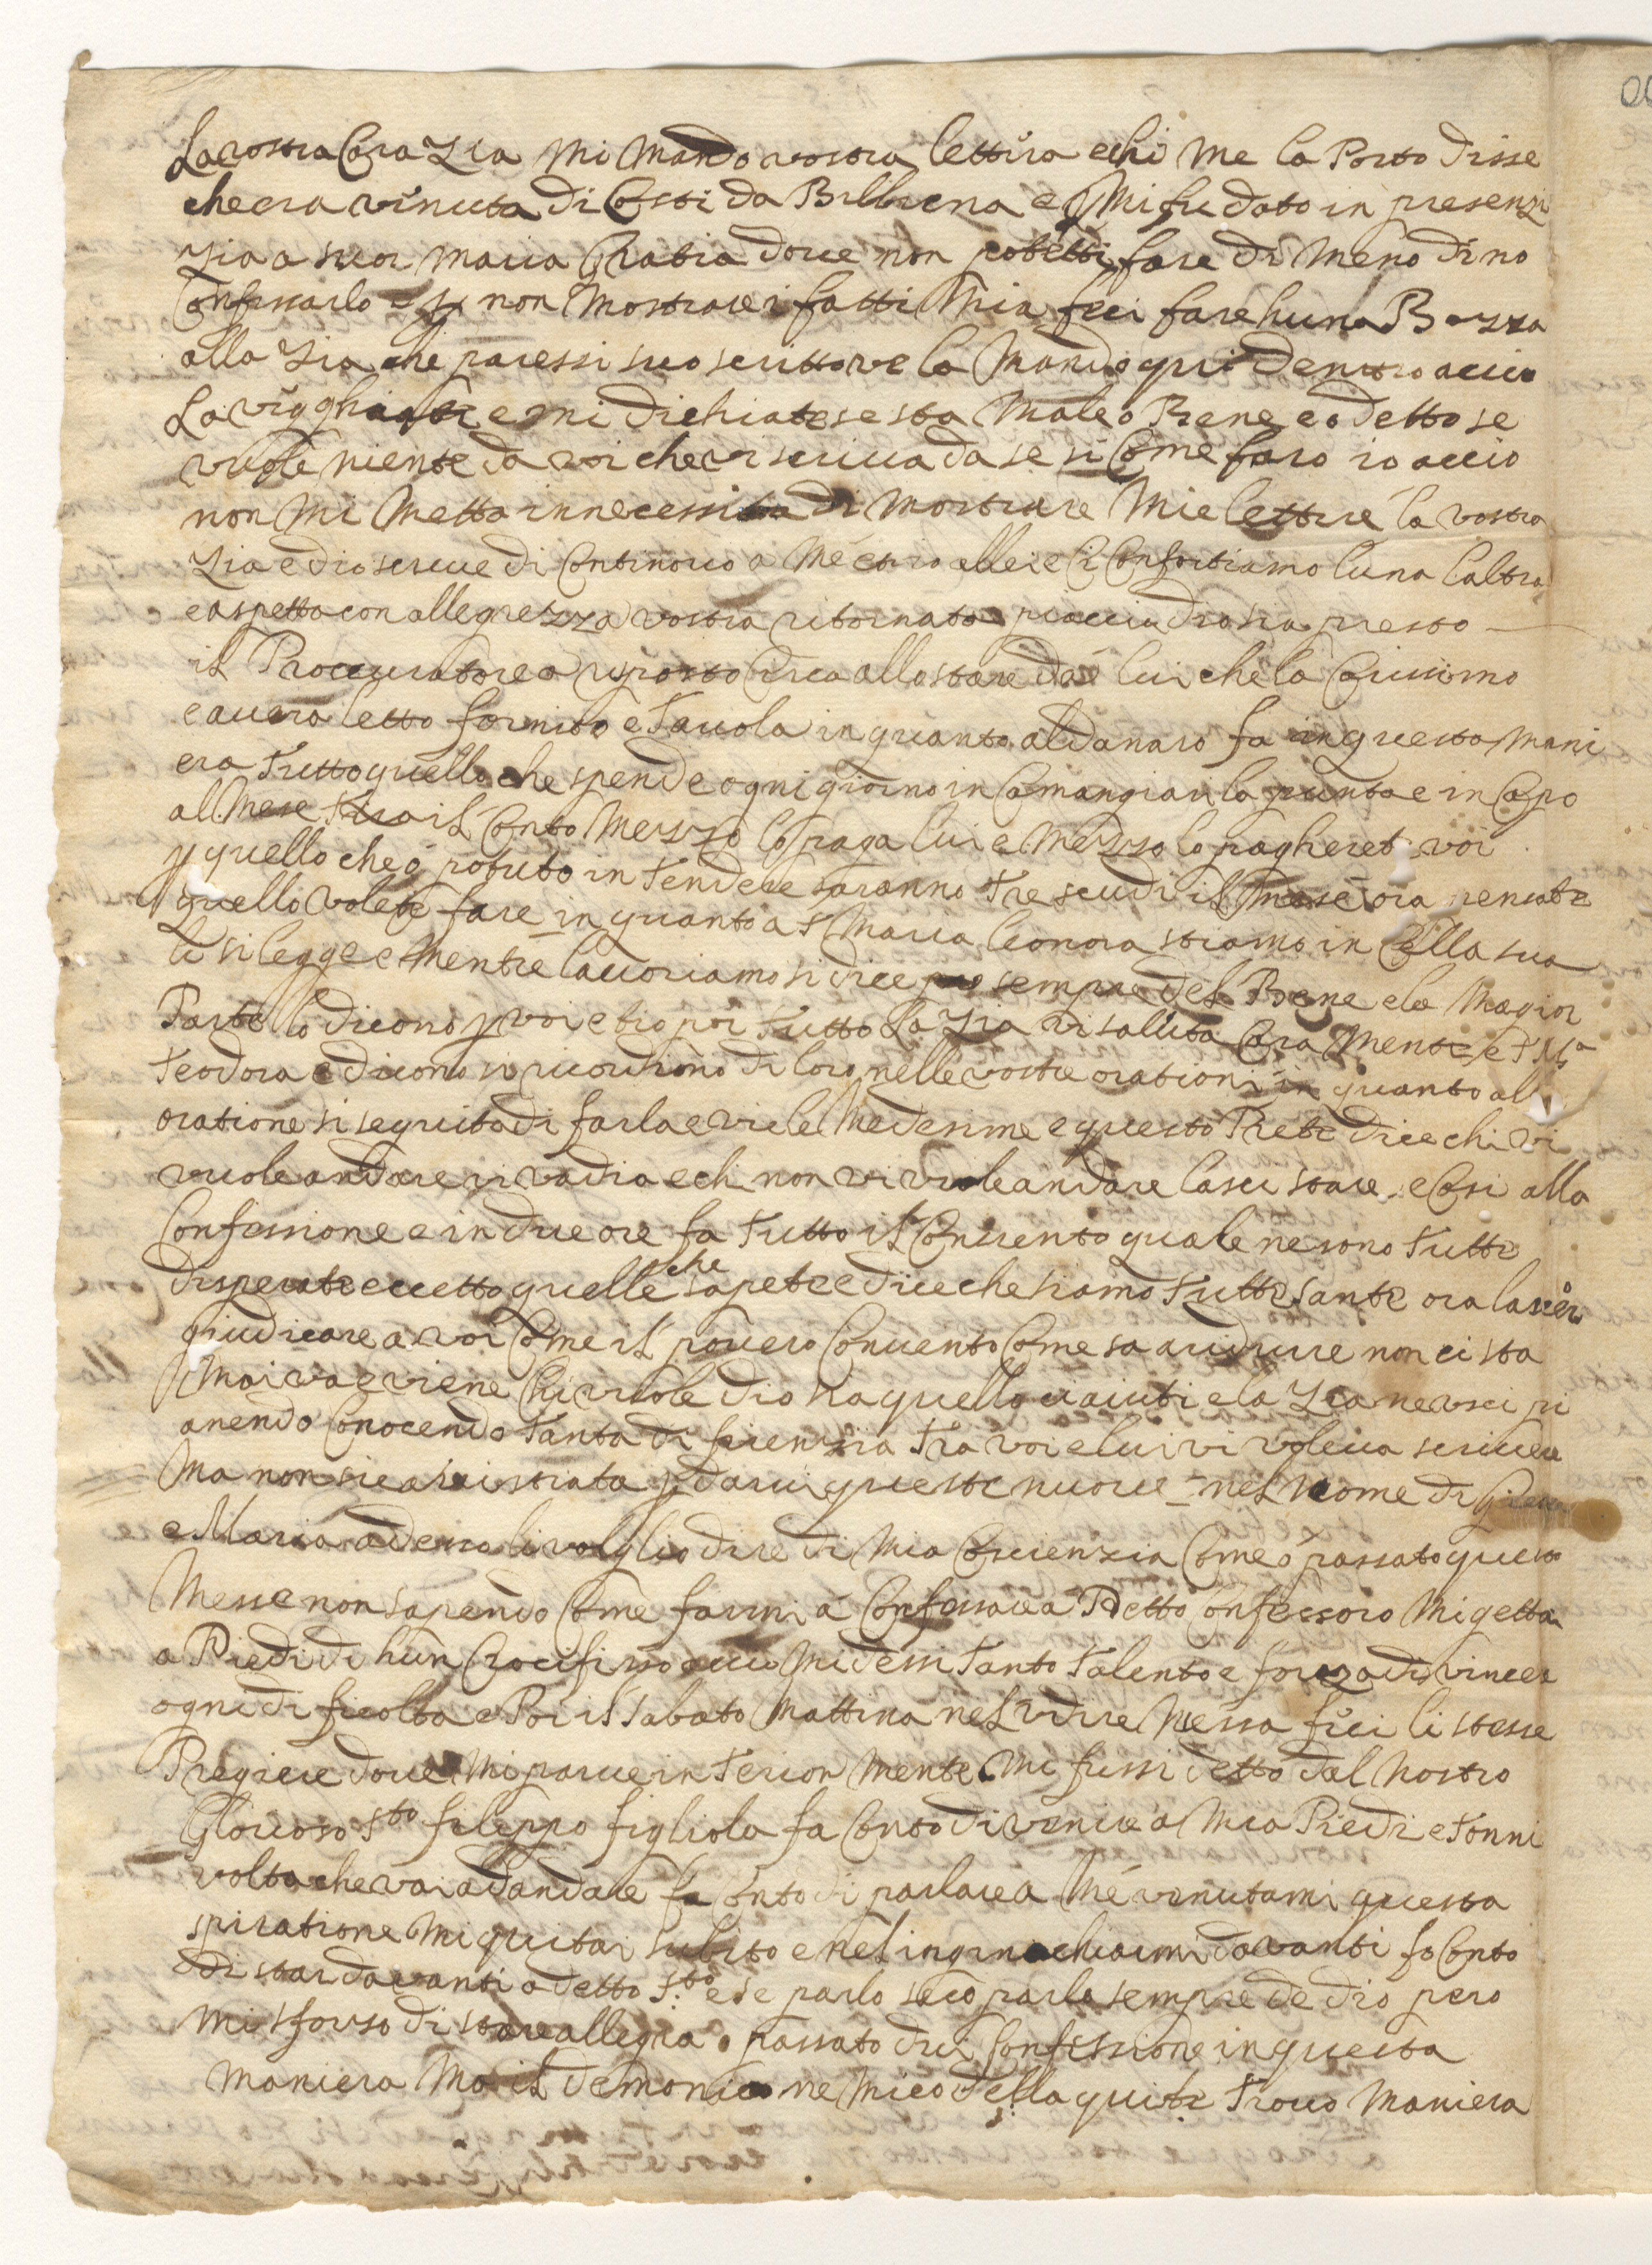 La vostra Cara Zia mi mando vostra lettira e chi me la Porto disse
che era vinuta di Costi da Bibbiena e mi fu dato in presenzi
zia a suor maria Gratia doue non potetti fare di meno di no
Confessarlo e p non mostrare i fatti mia feci fare huna Bozza
alla Zia che paressi suo scritto ve la mando qui dentro accio
La e mi dichiate se sta male o Bene e o detto se
vuole niente da voi che vi scriua da se si Come faro io accio
non mi metta in necessita di mostrare mie lettire la vostra
Zia e dio serue di Continouo a me et io allei e Ci Confortiamo luna laltra
e aspetta con allegrezza vostra ritornata piaccia dio sia presto
il Proccuratore a risposto Circa allo stare da lui che la Carissimo
e auera letto fornito e Tauola in quanto al danaro fa in questa mani
era Tutto quello che spende ogni giorno in Camangiari la punta e in Capo
al mese il Conto mezzo lo paga lui e mezzo lo pagherete voi
p quello che o potuto in Tendere saranno Tre scudi il mese ora pensate
quello volete fare in quanto a S Maria leonora stiamo in Cella sua
li si legge e mentre lauoriamo si dice sempre del Bene e la magior
Parte lo dicono p voi e poi Tutto la Zia vi saluta Cara mente e S Mª
Teodora e dicono vi ricordino di loro nelle vostre orationi in quanto al
oratione si seguita di farla e vi e le medesime e questo Prete dice chi vi
vuole andare vi vadia e chi non vi vuole andare lasci stare e Cosi alla
Confessione e in due ore fa Tutto il Conuento quale ne sono Tutte
disperate eccetto quelle che sapete e dice che siamo Tutte sante ora lascier
giudicare a voi Come il pouero Conuento Come sa non ci sta
mai va e viene Chi vuole dio ci aiuti e la Zia ne usci pi
anendo Conocendo Tanta di ferenzia Tra voi e lui vi voleua scriuere
Ma non si e p darui queste nuoue - nel Nome di
e Maria adesso li voglio dire di mia Coscienzia Come o passato questo
Messe non sapendo Come farmi a Confessare a Detto Confessoro mi getta
a Piedi di hun Crocifisso accio mi dessi Tanto Talento e forza di vincer
ogni di ficolta e Poi il Sabato mattina nel vdire Messa fici li stesse
Pregiere doue mi parue in Terior mente mi fussi detto dal Nostro
Glorioso Sto filippo figliola fa Conto di venire a mia Piedi e Tonni
volta che vai ad andare fa Conto di parlare a me vinutami questa
spiratione mi quitai subito e nel inginochiarmi davanti fo Conto
di star davanti a detto S.to e se parlo seco parlo sempre de dio pero
mi sforso di stare allegra o passato due Confessione in questa
maniera ma il demonico ne mico della quite Trouo maniera